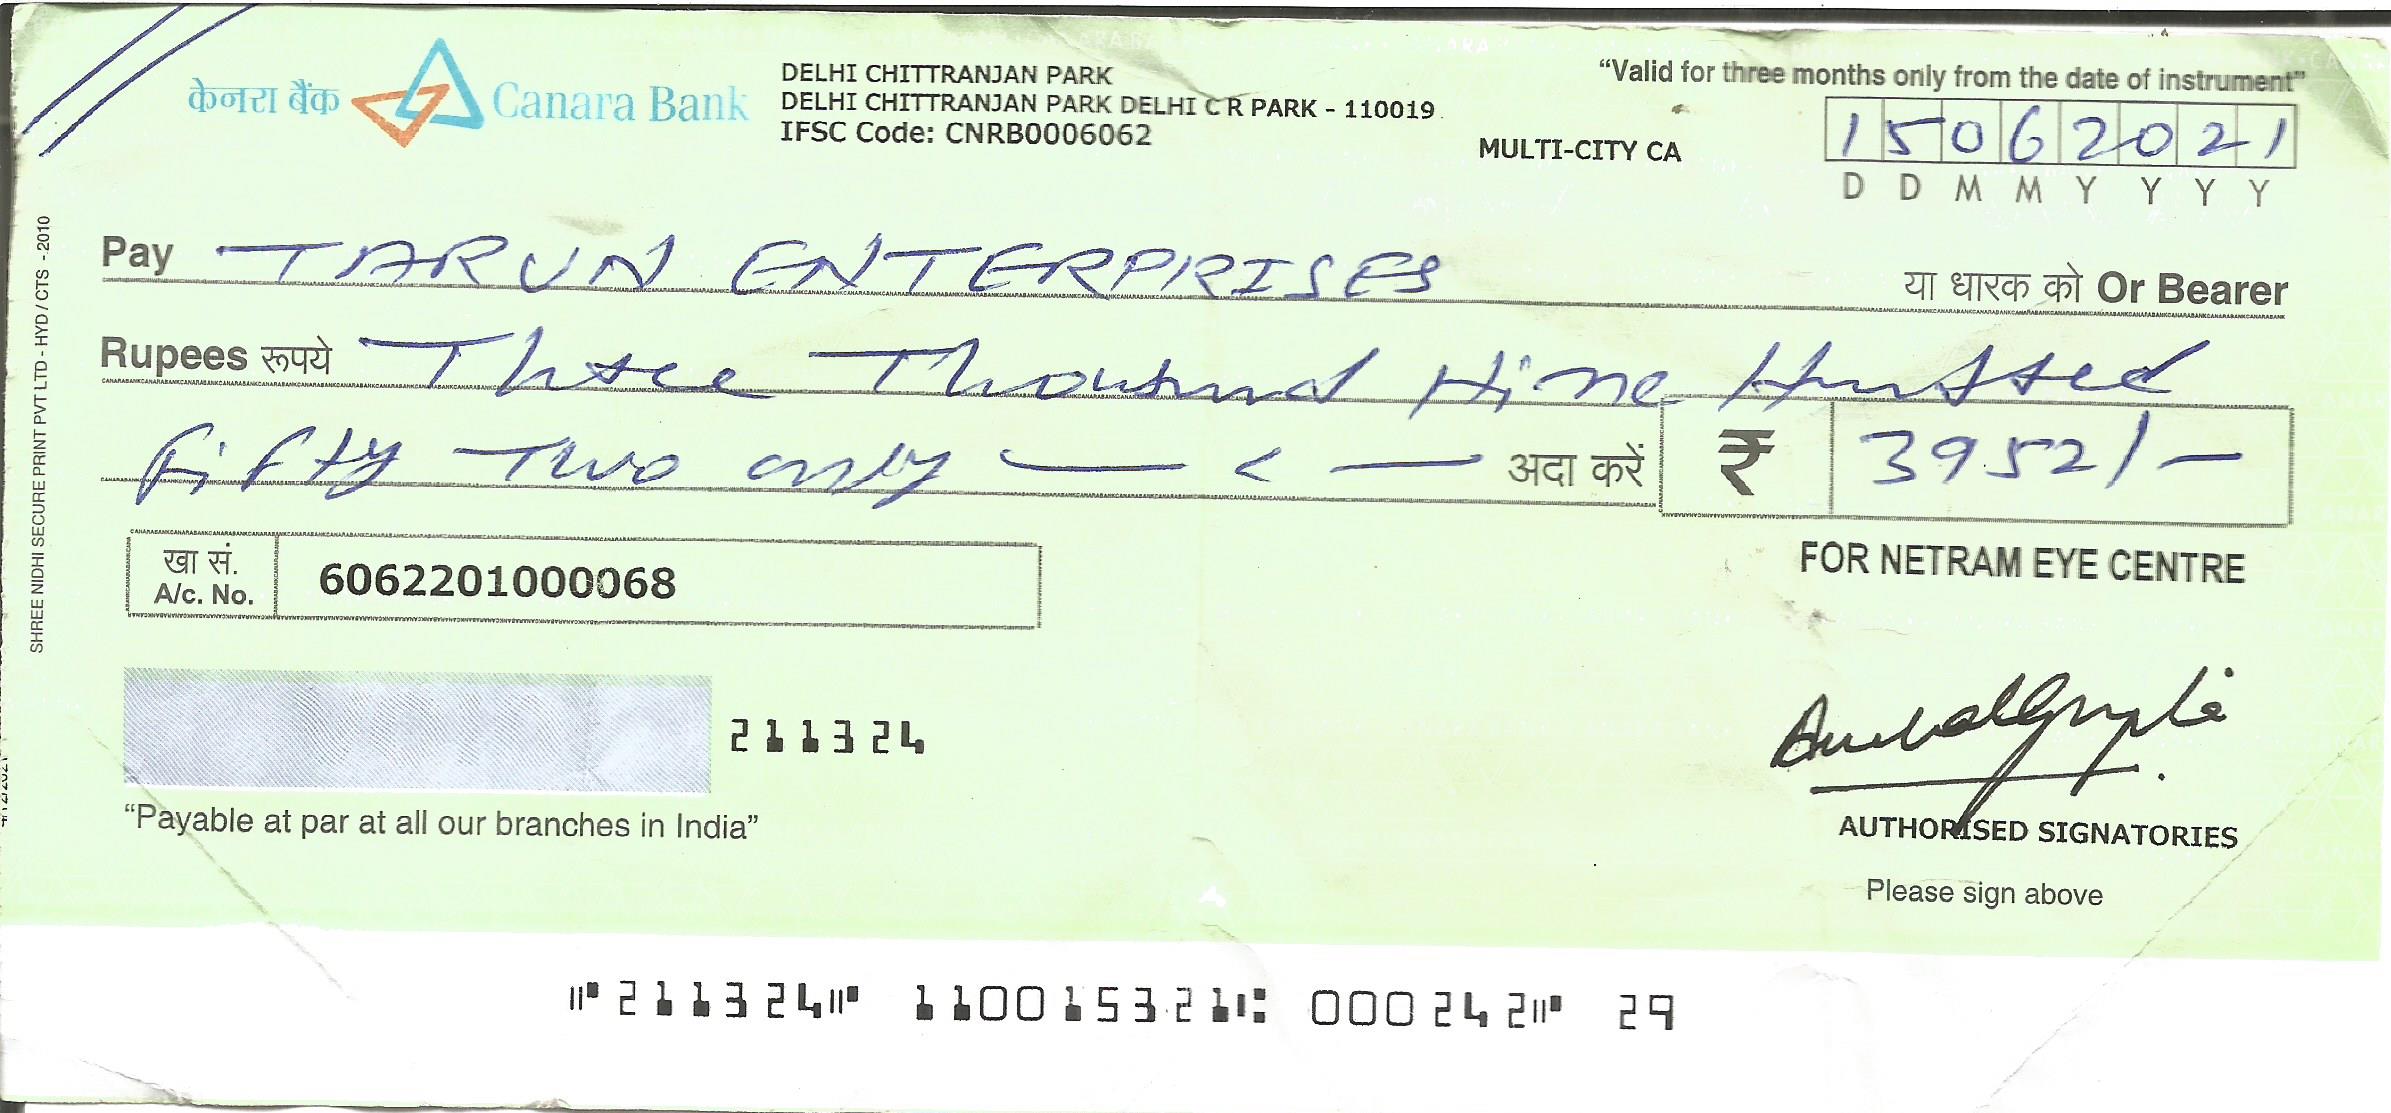 केनरा बैंक Canara Bank
DELHI CHITTRANJAN PARK
DELHI CHITTRANJAN PARK DELHI C R PARK - 110019
IFSC Code: CNRB0006062
MULTI-CITY CA
"Valid for three months only from the date of instrument"
15062021
D D M M Y Y Y Y
Pay TARUN ENTERPRISES या धारक को Or Bearer
Rupees रूपये Three Thousand Nine Hundred
Fifty Two only अदा करें ₹ 3952/-
खा सं.
A/c. No. 6062201000068
FOR NETRAM EYE CENTRE
211324
"Payable at par at all our branches in India"
AUTHORISED SIGNATORIES
Please sign above
⑈211324⑈ 110015321⑆ 000242⑈ 29
SHREE NIDHI SECURE PRINT PVT LTD - HYD / CTS - 2010